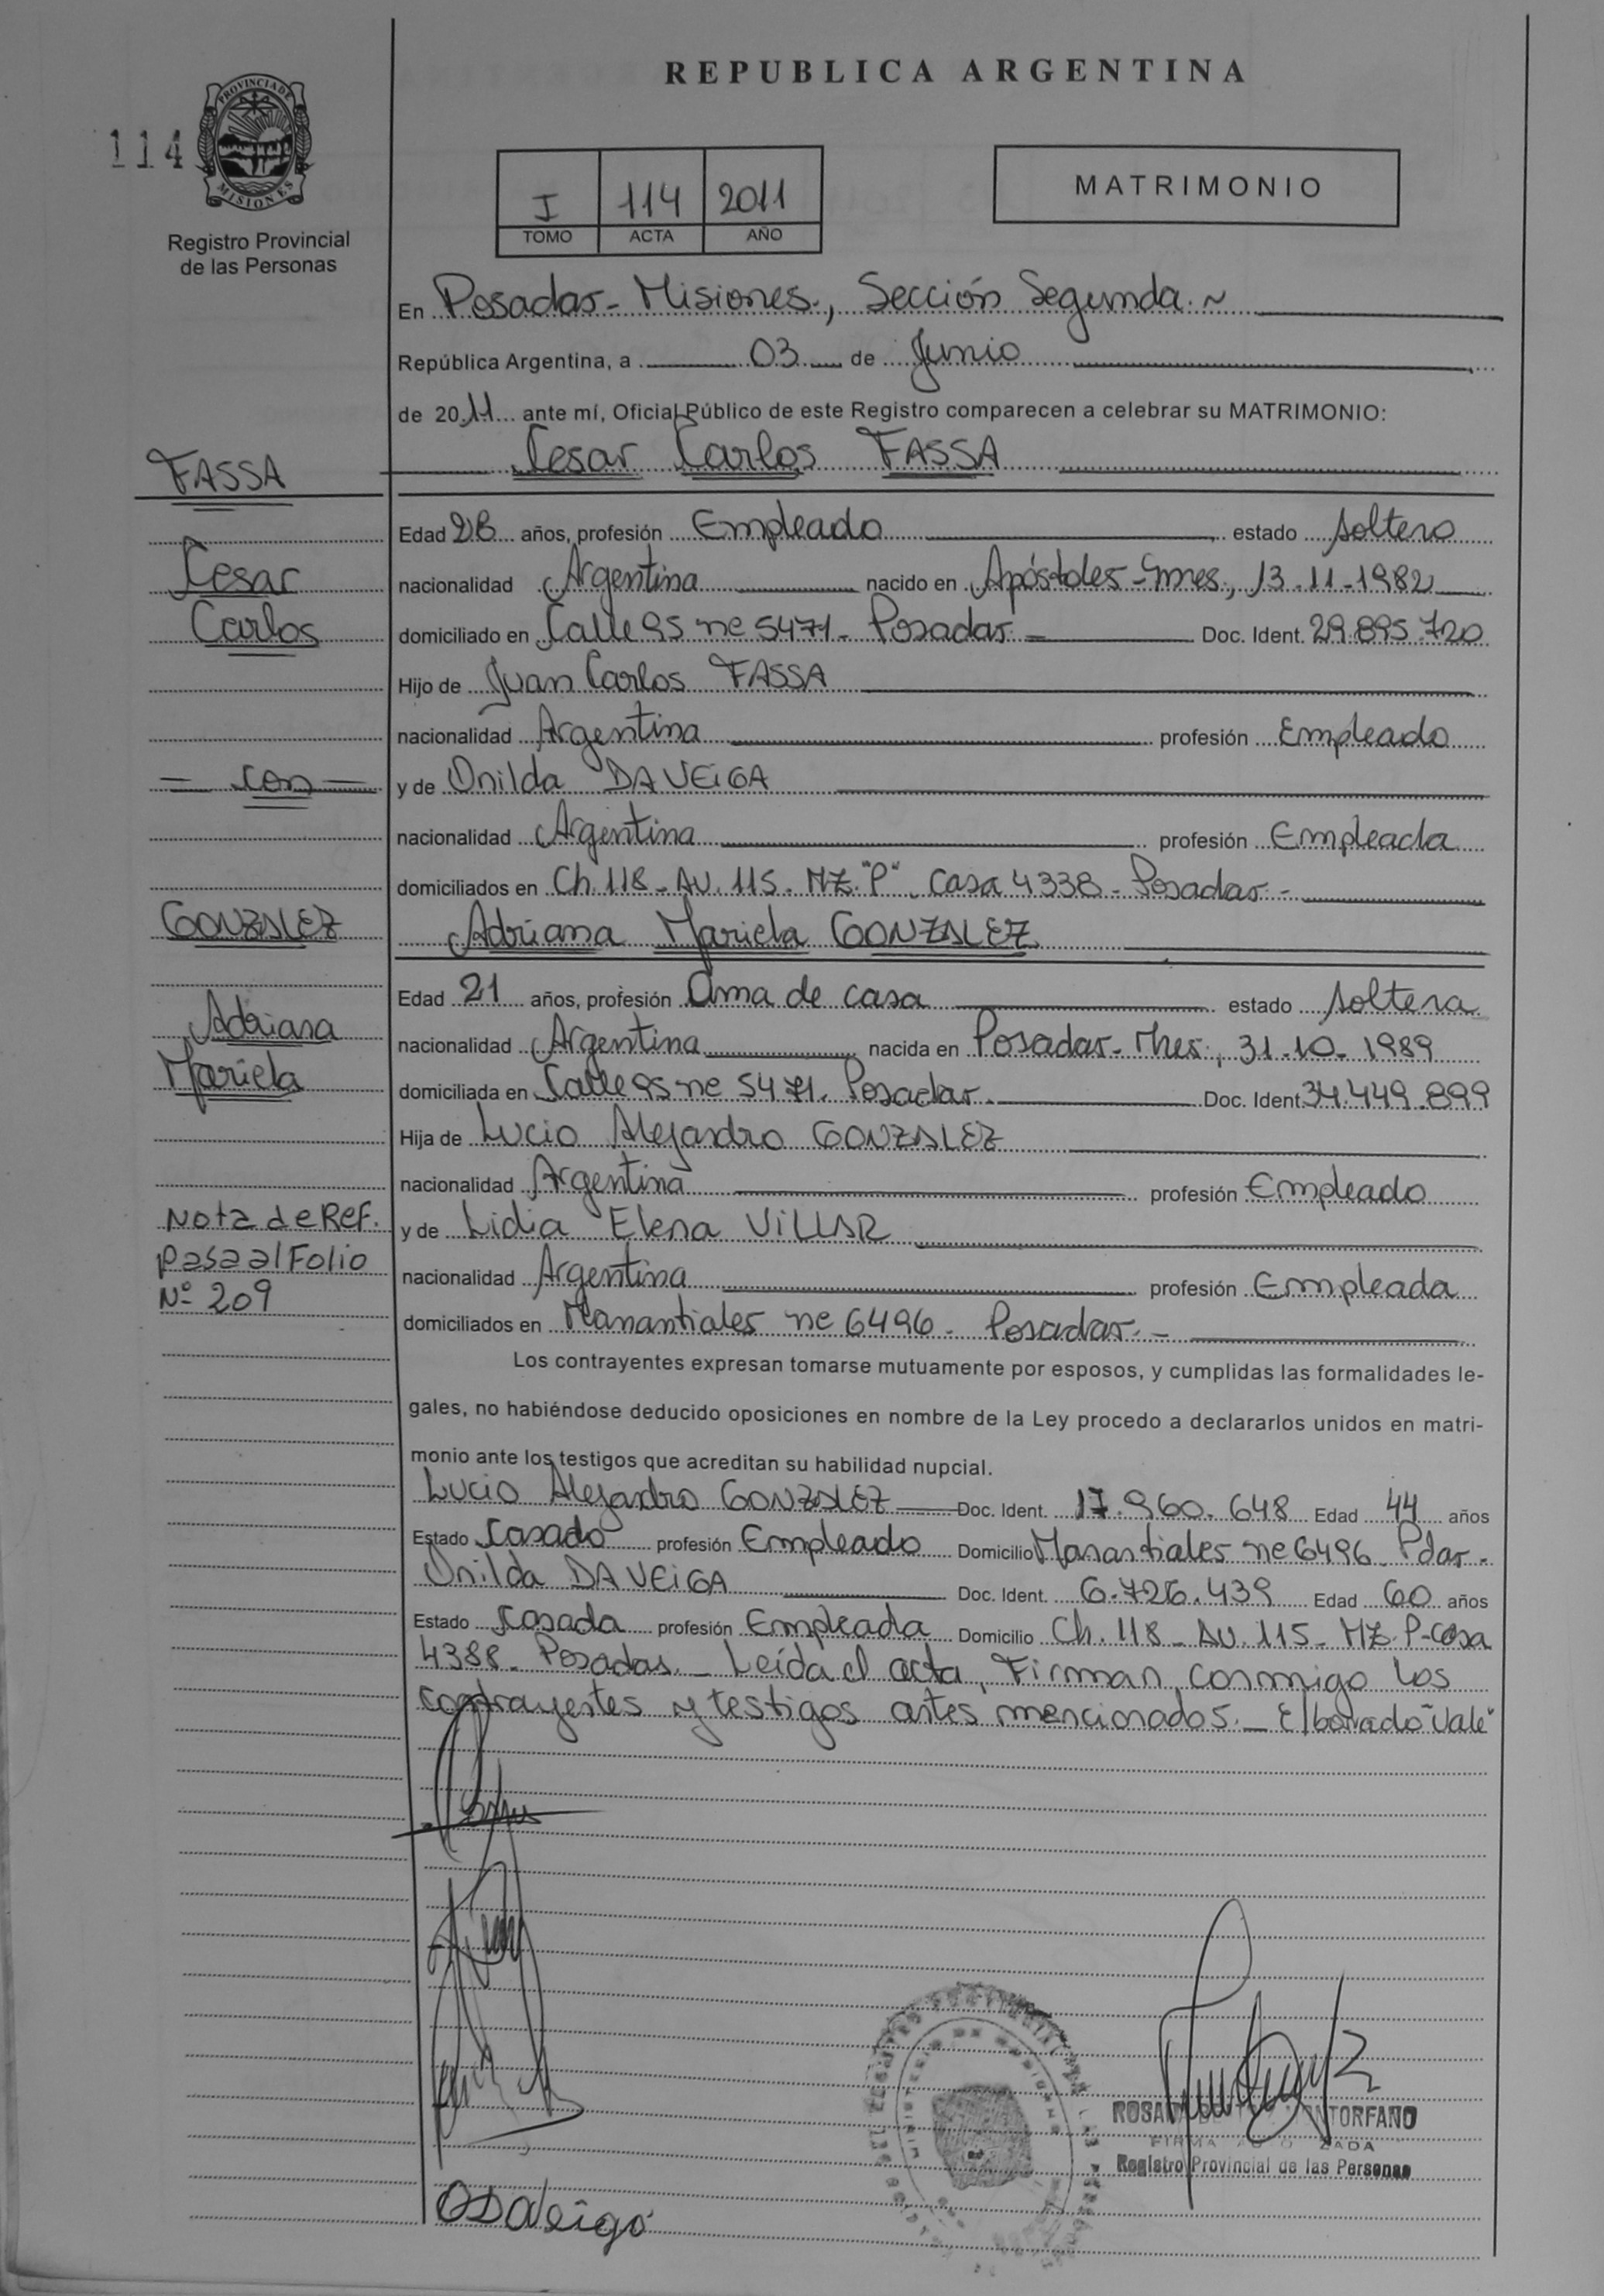 REPUBLICA ARGENTINA
114
PROVINCIA DE
MISIONES
Registro Provincial
de las Personas
I 114 2011
TOMO ACTA AÑO
MATRIMONIO
En Posadas - Misiones., Sección Segunda. ~
República Argentina, a 03 de Junio
de 2011 ante mí, Oficial Público de este Registro comparecen a celebrar su MATRIMONIO:
Cesar Carlos FASSA
FASSA
Cesar
Carlos
= con =
GONZALEZ
Adriana
Mariela
Nota de Ref.
pasa al Folio
Nº 209
Edad 28 años, profesión Empleado estado soltero
nacionalidad Argentina nacido en Apóstoles - Mnes., 13-11-1982
domiciliado en Calle 95 nº 5471 - Posadas - Doc. Ident. 29.895.720
Hijo de Juan Carlos FASSA
nacionalidad Argentina profesión Empleado
y de Onilda DA VEIGA
nacionalidad Argentina profesión Empleada
domiciliados en Ch. 118 - AV. 115 - MZ. "P". Casa 4338 - Posadas. -
Adriana Mariela GONZALEZ
Edad 21 años, profesión Ama de casa estado soltera
nacionalidad Argentina nacida en Posadas - Mnes, 31-10-1989
domiciliada en Calle 95 nº 5471. Posadas. Doc. Ident. 34.449.899
Hija de Lucio Alejandro GONZALEZ
nacionalidad Argentina profesión Empleado
y de Lidia Elena VILLAR
nacionalidad Argentina profesión Empleada
domiciliados en Manantiales nº 6496 - Posadas. -
Los contrayentes expresan tomarse mutuamente por esposos, y cumplidas las formalidades le-
gales, no habiéndose deducido oposiciones en nombre de la Ley procedo a declararlos unidos en matri-
monio ante los testigos que acreditan su habilidad nupcial.
Lucio Alejandro GONZALEZ Doc. Ident. 17.960.648 Edad 44 años
Estado Casado profesión Empleado Domicilio Manantiales nº 6496 - Pdas -
Onilda DA VEIGA Doc. Ident. 6.726.439 Edad 60 años
Estado Casada profesión Empleada Domicilio Ch. 118 - AV. 115 - MZ. P - casa
4388 - Posadas. - Leída el acta, Firman conmigo los
contrayentes y testigos antes mencionados. - E/borrado "Vale"
ODaVeiga
FIRMA AUTORIZADA
Registro Provincial de las Personas